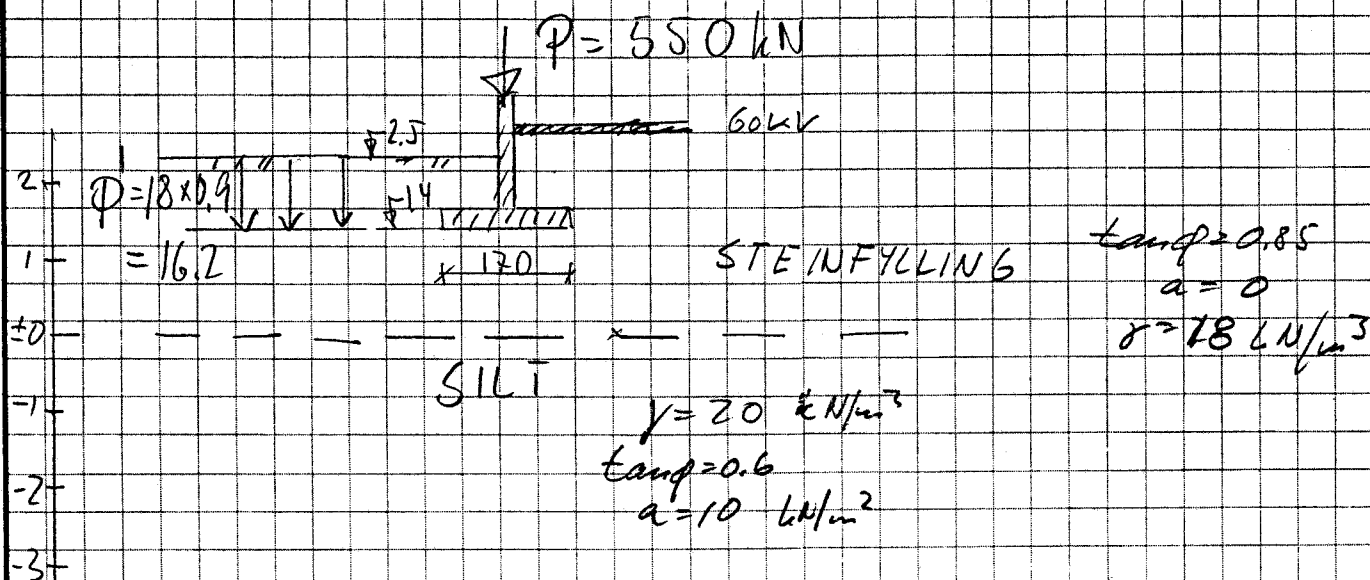 P = 550 kN
60kV
2.5
P = 18 x 0.9
= 16.2
14
170
STEINFYLLING
tanφ = 0.85
a = 0
γ = 18 kN/m³
SILT
γ = 20 kN/m³
tanφ = 0.6
a = 10 kN/m²
2
1
±0
-1
-2
-3